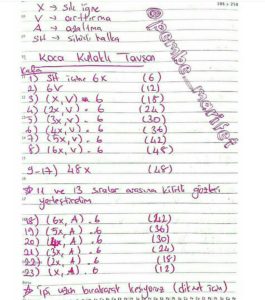 X → sık iğne
V → arttırma
A → azaltma
SH → sihirli halka
Koca Kulaklı Tavşan
Kafa
1) SH içine 6X (6)
2) 6V (12)
3) (X, V) * 6 (18)
4) (2x, V) * 6 (24)
5) (3x, V) * 6 (30)
6) (4x, V) * 6 (36)
7) (5x, V) * 6 (42)
8) (6x, V) * 6 (48)
9-17) 48 X (48)
* 11 ve 13 sıralar arasına kilitli gözleri
yerleştirdim
18) (6x, A) * 6 (42)
19) (5x, A) * 6 (36)
20) (4x, A) * 6 (30)
21) (3x, A) * 6 (24)
22) (2x, A) * 6 (18)
23) (X, A) * 6 (12)
* ipi uzun bırakarak kesiyoruz (dikmek için)
pembe_marifet